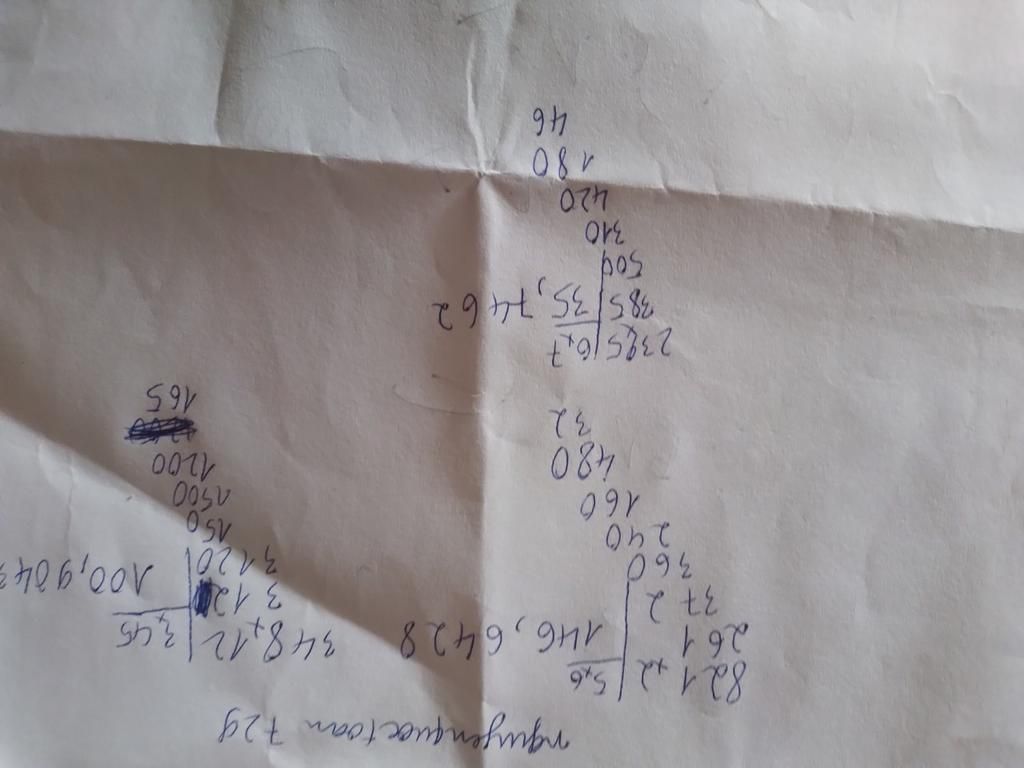 nguyenquoctoan 72g
821,2 5,6
261 146,6428
372
360
240
160
480
32
348,12 3,45
3 12 100,9043
3120
150
1500
1200
165
239,5 6,7
385 35,7462
500
310
420
180
46